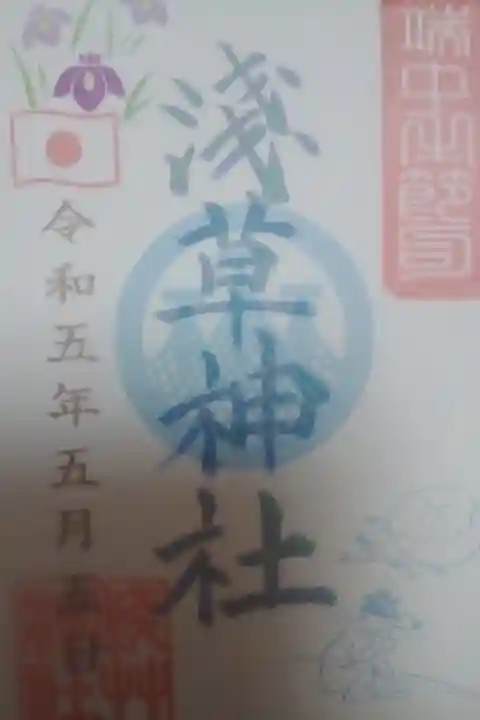 端午節句
浅草神社
令和五年五月五日